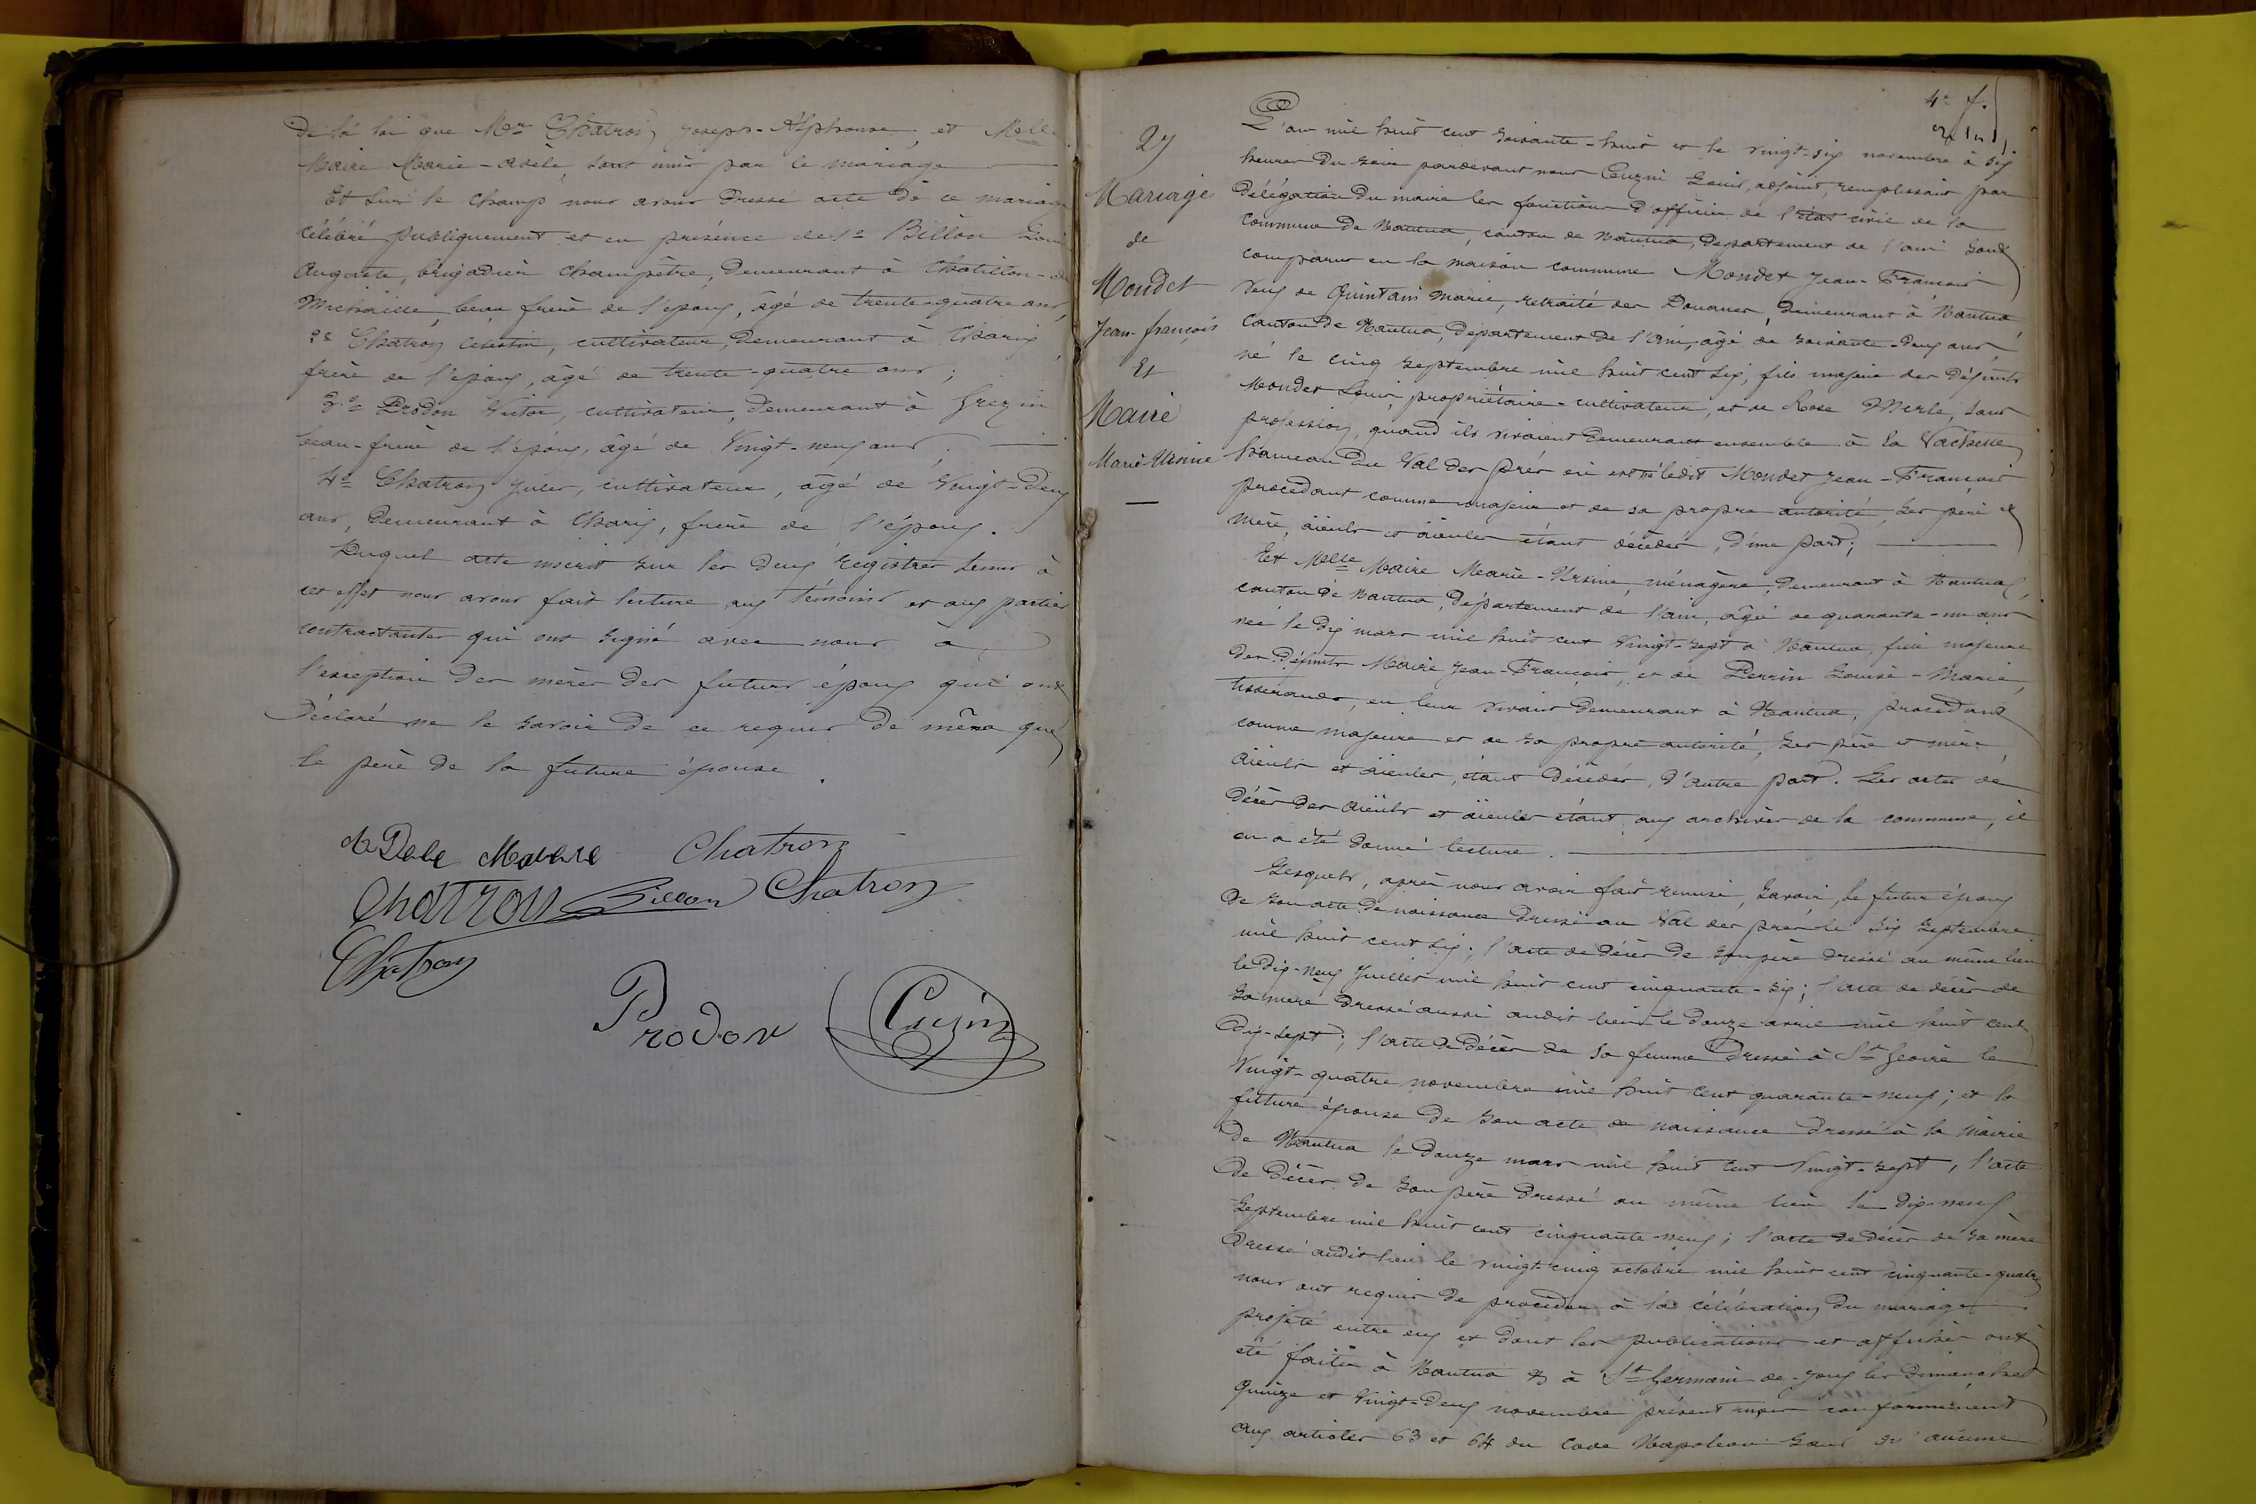 de la loi que Mr Chatron Joseph-Alphonse, et Melle
Maire Marie-Adèle, sont unis par le mariage
Et sur le champ nous avons dressé acte de ce mariage
célébré publiquement et en présence de 1º Billon Louis
Auguste, brigadier champêtre, demeurant à Chatillon-de
Michaille, beau frère de l'époux, âgé de trente-quatre ans,
2º Chatron Célestin, cultivateur, demeurant à Charix
frère de l'époux, âgé de trente-quatre ans;
3º Prodon Victor, cultivateur, demeurant à
beau-frère de l'époux, âgé de vingt-neuf ans;
4º Chatron Jules, cultivateur, âgé de vingt-deux
ans, demeurant à Charix, frère de l'époux.
Duquel acte inscrit sur les deux registres tenus à
cet effet nous avons fait lecture aux témoins et aux parties
contractantes qui ont signé avec nous à
l'exception des mères des futurs époux qui ont
déclaré ne le savoir de ce requis de même que
le père de la future épouse.
Chatron
Chatron Billon Chatron
Chatron
Prodon Cuzin
27
Mariage
de
Mondet
Jean-françois
Et
Maire
Marie-Ursine
L'an mil huit cent soixante-huit et le vingt-six novembre à six
heures du soir pardevant nous Louis, adjoint, remplissant par
délégation du maire les fonctions d'officier de l'état civil de la
commune de Nantua, canton de Nantua, département de l'ain sont
comparus en la maison commune Mondet Jean-François
veuf de Quintain Marie, retraité des Douanes, demeurant à Nantua,
canton de Nantua, département de l'ain, âgé de soixante-deux ans,
né le cinq septembre mil huit cent six, fils majeur des défunts
Mondet Louis, propriétaire-cultivateur, et de Rose Merle, sans
profession, quand ils vivaient demeurant ensemble à la Vachette
hameau du Val des prés où est né ledit Mondet Jean-François
procédant comme majeur et de sa propre autorité, ses père et
mère, aïeuls et aïeules étant décédés, d'une part;
Et Melle Maire Marie-Ursine, ménagère, demeurant à Nantua,
canton de Nantua, département de l'ain, âgée de quarante-un ans
née le dix mars mil huit cent vingt-sept à Nantua, fille majeure
des défunts Maire Jean-François, et de Perrin Louise-Marie,
tisserands, en leur vivant demeurant à Nantua, procédant
comme majeure et de sa propre autorité, ses père et mère,
aïeuls et aïeules, étant décédés, d'autre part. Les actes de
décès des aïeuls et aïeules étant aux archives de la commune, il
en a été donné lecture.
Lesquels, après nous avoir fait remise, savoir, le futur époux
de son acte de naissance dressé au Val des prés le six septembre
mil huit cent six; l'acte de décès de son père dressé au même lieu
le dix-neuf Juillet mil huit cent cinquante-six; l'acte de décès de
sa mère dressé aussi audit lieu le douze avril mil huit cent
dix-sept; l'acte de décès de sa femme dressé à St Geoire le
vingt-quatre novembre mil huit cent quarante-neuf; et la
future épouse de son acte de naissance dressé à la mairie
de Nantua le douze mars mil huit cent vingt-sept, l'acte
de décès de son père dressé au même lieu le dix-neuf
septembre mil huit cent cinquante-neuf; l'acte de décès de sa mère
dressé audit lieu le vingt-cinq octobre mil huit cent cinquante-quatre
nous ont requis de procéder à la célébration du mariage
projeté entre eux et dont les publications et affiches ont
été faites à Nantua & à St Germain-de-Joux les dimanches
quinze et vingt-deux novembre présent mois conformément
aux articles 63 et 64 du Code Napoléon sans qu'aucune